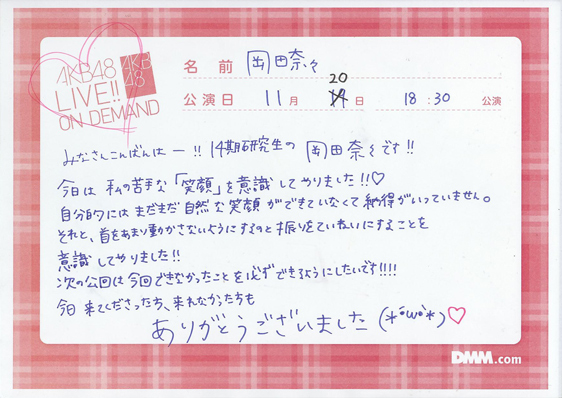 AKB48
LIVE!!
ON DEMAND
AKB
48
名前 岡田奈々
20
公演日 11月 19日 18:30 公演
みなさんこんばんはー!! 14期研究生の 岡田奈々です!!
今日は 私の苦手な「笑顔」を意識してやりました!!♡
自分的にはまだまだ自然な笑顔ができていなくて納得がいっていません。
それと、首をあまり動かさないようにするのと振りをていねいにすることを
意識してやりました!!
次の公回は今回できなかったことを必ずできるようにしたいです!!!!
今日 来てくださった方、来れなかった方も
ありがとうございました(*•̀ω•́*)♡
DMM.com